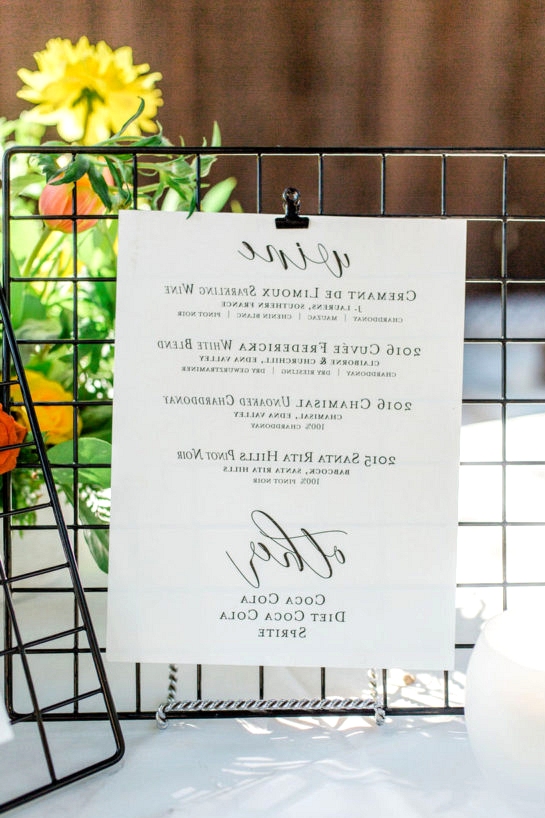 wine
Cremant de Limoux Sparkling Wine
J. Laurens, Southern France
Chardonnay | Mauzac | Chenin Blanc | Pinot Noir
2016 Cuvée Fredericka White Blend
Claiborne & Churchill, Edna Valley
Chardonnay | Dry Riesling | Dry Gewurztraminer
2016 Chamisal Unoaked Chardonnay
Chamisal, Edna Valley
100% Chardonnay
2015 Santa Rita Hills Pinot Noir
Babcock, Santa Rita Hills
100% Pinot Noir
other
Coca Cola
Diet Coca Cola
Sprite